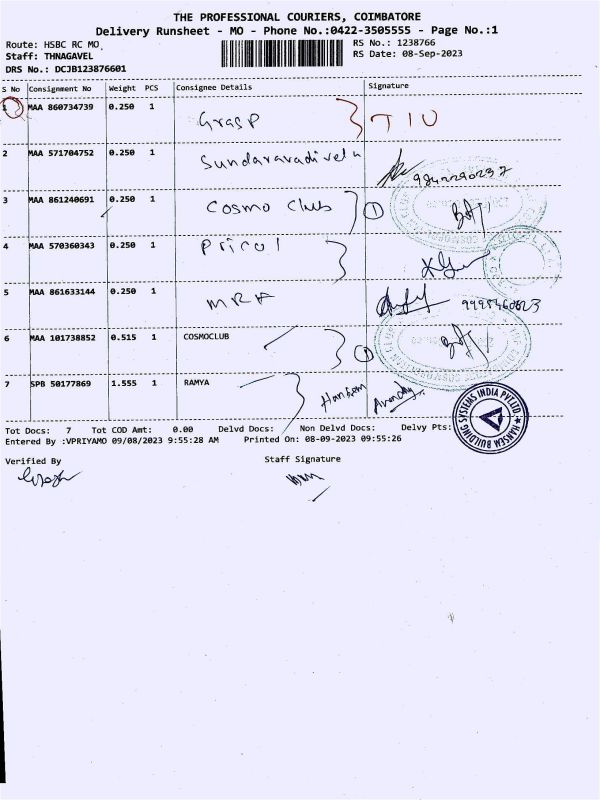 THE PROFESSIONAL COURIERS, COIMBATORE
Delivery Runsheet - MO - Phone No.:0422-3505555 - Page No.:1
Route: HSBC RC MO
RS No.: 1238766
Staff: THNAGAVEL
RS Date: 08-Sep-2023
DRS No.: DCJB123876601
S No Consignment No Weight PCS Consignee Details Signature
1 MAA 860734739 0.250 1 Grasp TIU
2 MAA 571704752 0.250 1 Sundaravadivelu
3 MAA 861240691 0.250 1 Cosmo Club 1
4 MAA 570360343 0.250 1 Pricol
5 MAA 861633144 0.250 1 MRF
6 MAA 101738852 0.515 1 COSMOCLUB 1
7 SPB 50177869 1.555 1 RAMYA Hansem
HANSEM BUILDING SYSTEMS INDIA PVT.LTD
Tot Docs: 7 Tot COD Amt: 0.00 Delvd Docs: Non Delvd Docs: Delvy Pts:
Entered By :VPRIYAMO 09/08/2023 9:55:28 AM Printed On: 08-09-2023 09:55:26
Verified By Staff Signature